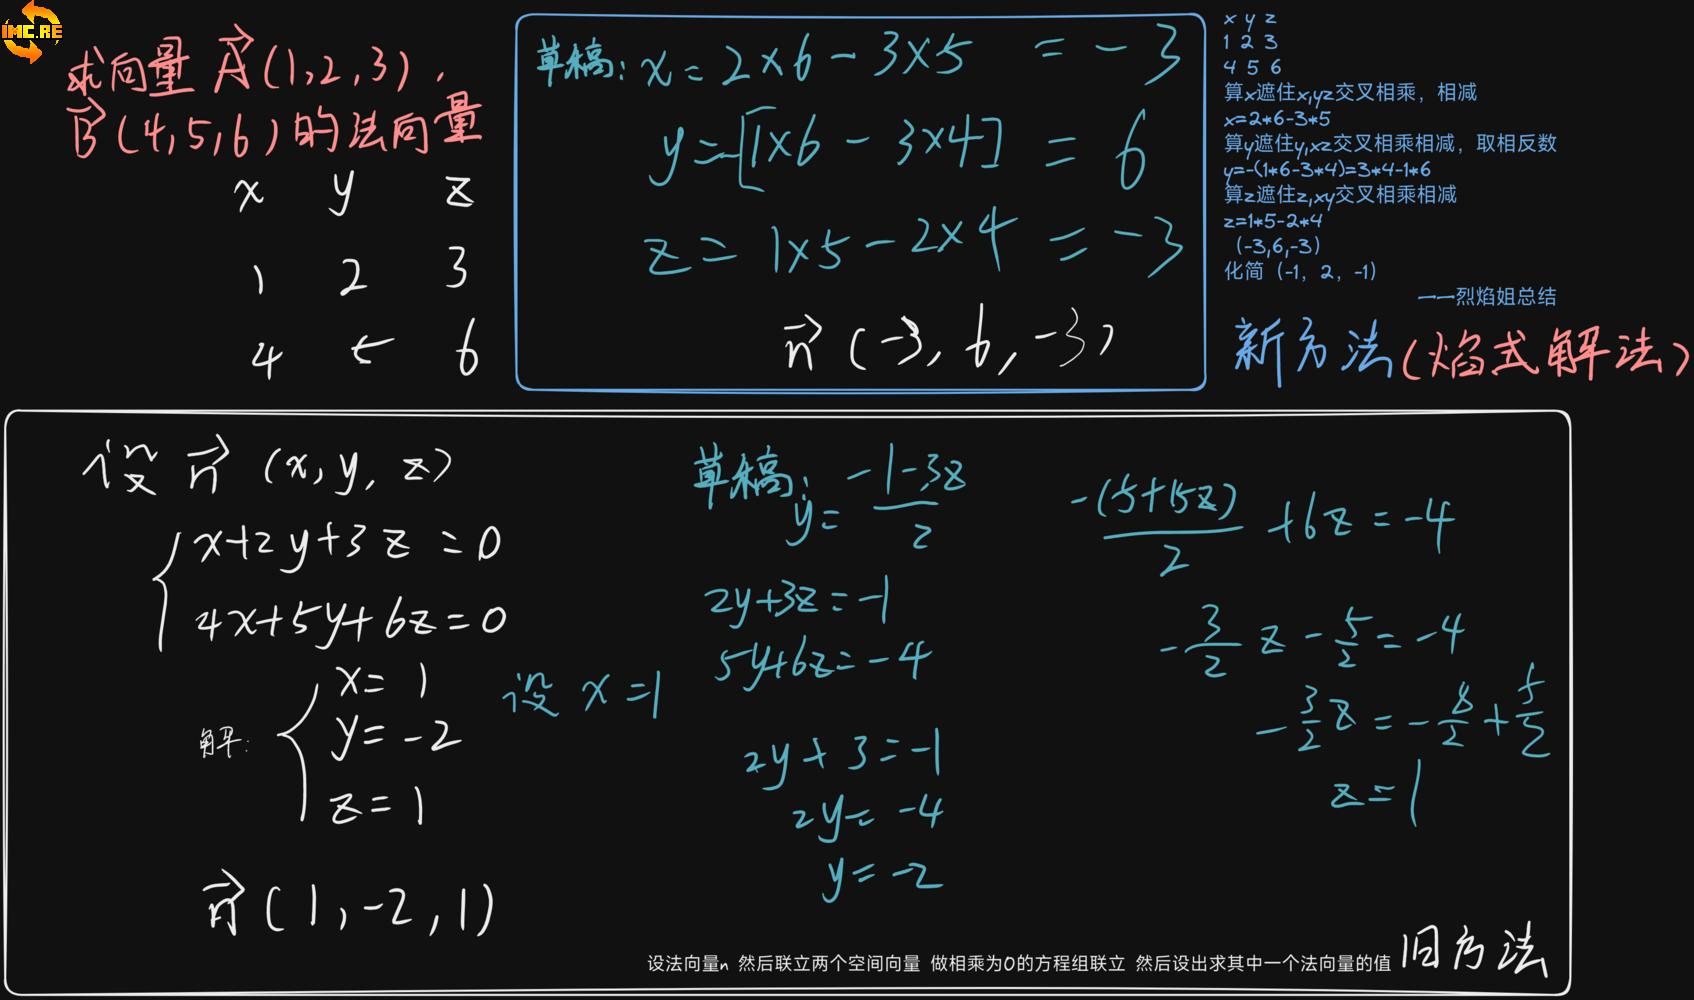 IMC.RE
求向量 A(1,2,3),
B(4,5,6)的法向量
x y z
1 2 3
4 5 6
草稿: x = 2×6 - 3×5 = -3
y = -[1×6 - 3×4] = 6
z = 1×5 - 2×4 = -3
n (-3, 6, -3)
x y z
1 2 3
4 5 6
算x遮住x,yz交叉相乘，相减
x=2*6-3*5
算y遮住y,xz交叉相乘相减，取相反数
y=-(1*6-3*4)=3*4-1*6
算z遮住z,xy交叉相乘相减
z=1*5-2*4
（-3,6,-3）
化简（-1，2，-1）
——烈焰姐总结
新方法(焰式解法)
设 n (x, y, z)
x+2y+3z=0
4x+5y+6z=0
解:
x=1
y=-2
z=1
设 x=1
n (1,-2,1)
草稿:
y= -1-3z / 2
2y+3z=-1
5y+6z=-4
2y+3=-1
2y=-4
y=-2
-(5+15z) / 2 +6z=-4
-3/2 z - 5/2 = -4
-3/2 z = -8/2 + 5/2
z=1
设法向量n 然后联立两个空间向量 做相乘为0的方程组联立 然后设出求其中一个法向量的值
旧方法